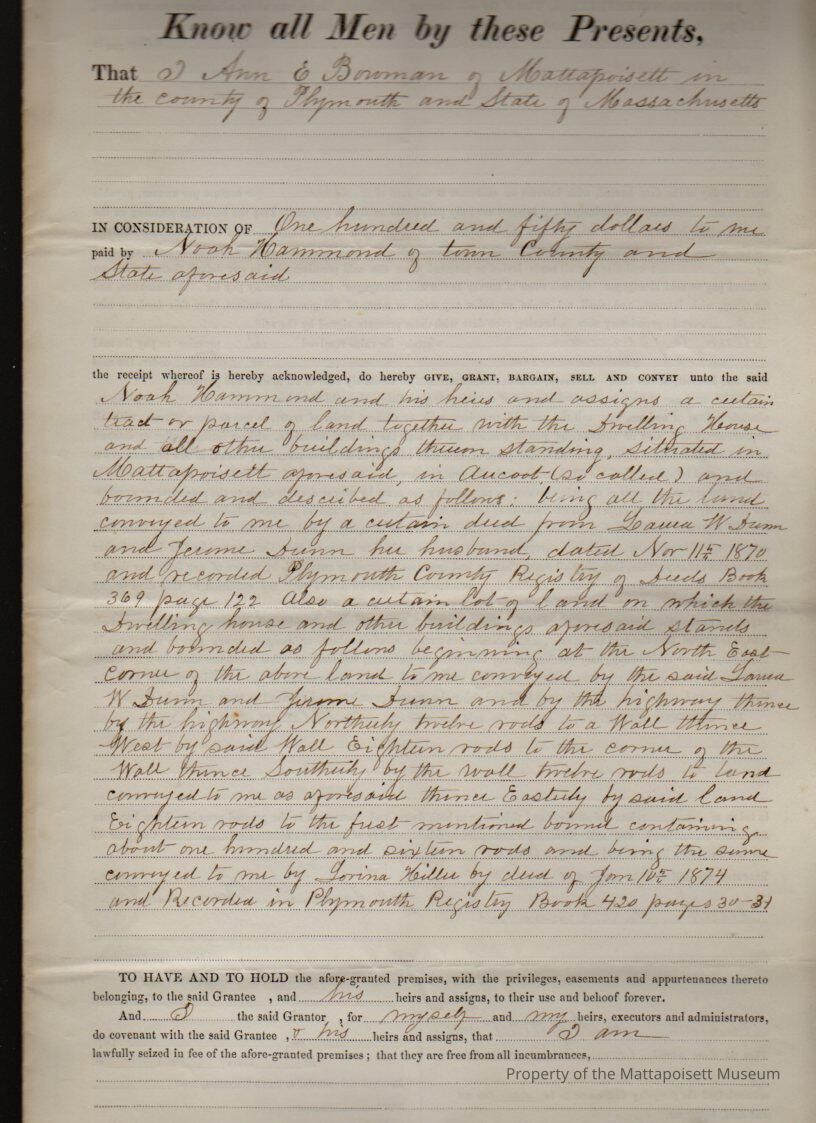 Know all Men by these Presents,
That I Ann E Bowman of Mattapoisett in
the county of Plymouth and State of Massachusetts
IN CONSIDERATION OF One hundred and fifty dollars to me
paid by Noah Hammond of town County and
State aforesaid
the receipt whereof is hereby acknowledged, do hereby GIVE, GRANT, BARGAIN, SELL AND CONVEY unto the said
Noah Hammond and his heirs and assigns a certain
tract or parcel of land together with the Dwelling House
and all other buildings thereon standing, situated in
Mattapoisett aforesaid, in Aucoot (so called) and
bounded and described as follows: being all the land
conveyed to me by a certain deed from Laura W Dunn
and Jerome Dunn her husband, dated Nov 11th 1870
and recorded Plymouth County Registry of Deeds Book
369 page 122 Also a certain lot of land on which the
Dwelling house and other buildings aforesaid stands
and bounded as follows beginning at the North East
corner of the above land to me conveyed by the said Laura
W Dunn and Jerome Dunn and by the highway thence
by the highway Northerly twelve rods to a Wall thence
West by said Wall Eighteen rods to the corner of the
Wall thence Southerly by the wall twelve rods to land
conveyed to me as aforesaid thence Easterly by said land
Eighteen rods to the first mentioned bound containing
about one hundred and sixteen rods and being the same
conveyed to me by Lorina Hiller by deed of Jan 10th 1874
and Recorded in Plymouth Registry Book 420 pages 30-31
TO HAVE AND TO HOLD the afore-granted premises, with the privileges, easements and appurtenances thereto
belonging, to the said Grantee , and his heirs and assigns, to their use and behoof forever.
And I the said Grantor , for myself and my heirs, executors and administrators,
do covenant with the said Grantee , & his heirs and assigns, that I am
lawfully seized in fee of the afore-granted premises ; that they are free from all incumbrances,
Property of the Mattapoisett Museum